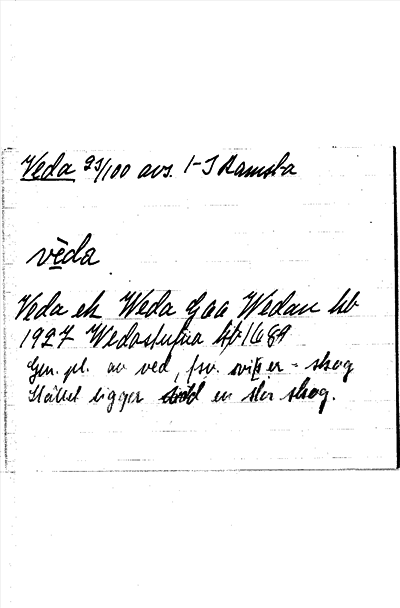 Veda 23/100 avs. 1-3 Ramsta
vèda
Veda ek Weda Gaa Wedan hb
1927 Wedastufua hb 1689
Gen. pl. av ved, fsv. viþer = skog
Stället ligger en stor skog.